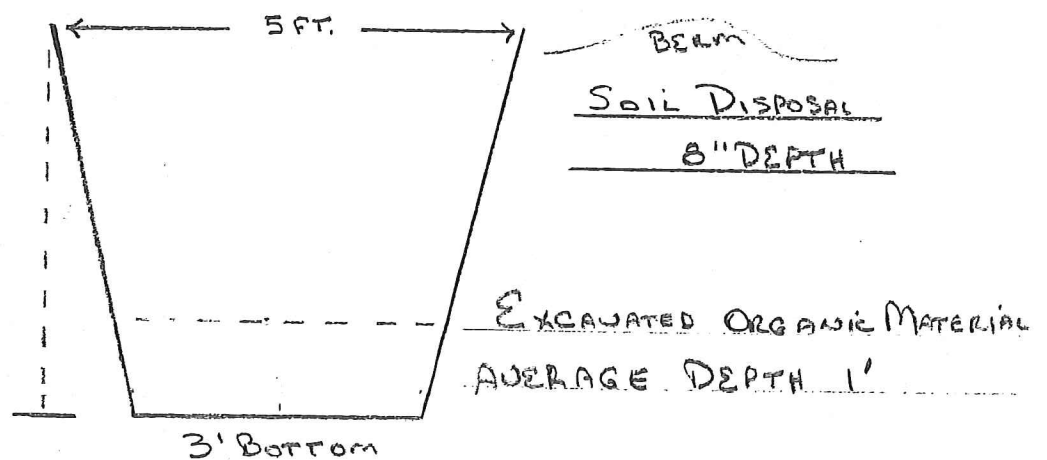 5 FT.
BERM
SOIL DISPOSAL
8" DEPTH
EXCAVATED ORGANIC MATERIAL
AVERAGE DEPTH 1'
3' BOTTOM